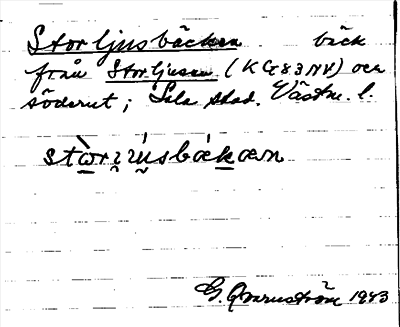 Storljusbäcken bäck
från Storljusen (K G 83 NV) och
söderut; Sala stad. Västm. l.
stὼrɩ̯ʉ́sbäkæn
G. Qvarnström 1943